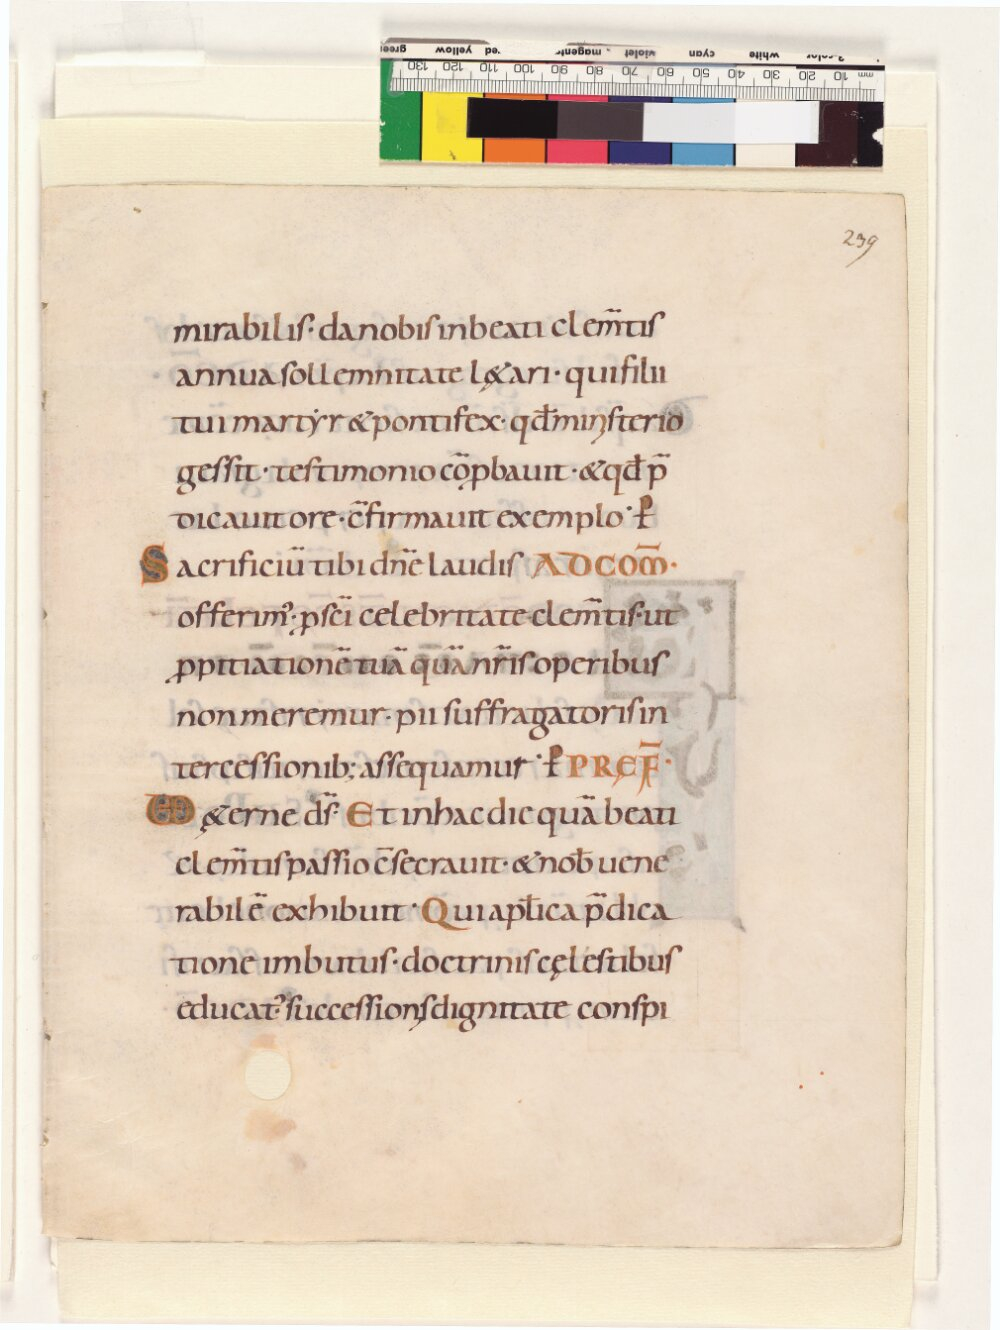 239
mirabilis· da nobis in beati clem̄tis
annua sollemnitate l&ari· qui filii
tui martẏr & pontifex· qđ ministerio
gessit· testimonio cōp̱bauit· & qđ p̄
dicauit ore· c̄firmauit exemplo· P̱
Sacrificiū tibi dn̄e laudis AD COM̄·
offerim᾽· p̱ sc̄i celebritate clem̄tis· ut
p̱pitiationē tuā quā nr̄is operibus
non meremur· pii suffragatoris in
tercessionib; assequamur· P̱ PREF̄·
VD &erne ds̄· Et in hac die quā beati
clem̄tis passio c̄secrauit· & nob̄ uene
rabilē exhibuit· Qui ap̄lica p̄dica
tione imbutus· doctrinis cęlestibus
educat᾽· successionis dignitate conspi